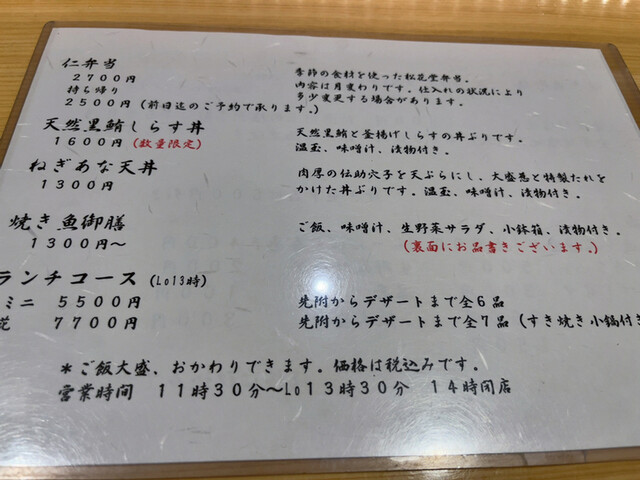 仁弁当
2700円
持ち帰り
2500円(前日迄のご予約で承ります。)
季節の食材を使った松花堂弁当。
内容は月変わりです。仕入れの状況により
多少変更する場合があります。
天然黒鮪しらす丼
1600円(数量限定)
天然黒鮪と釜揚げしらすの丼ぶりです。
温玉、味噌汁、漬物付き。
ねぎあな天丼
1300円
肉厚の伝助穴子を天ぷらにし、大盛葱と特製たれを
かけた丼ぶりです。温玉、味噌汁、漬物付き。
焼き魚御膳
1300円〜
ご飯、味噌汁、生野菜サラダ、小鉢箱、漬物付き。
(裏面にお品書きございます。)
ランチコース(Lo13時)
ミニ 5500円
先附からデザートまで全6品
花 7700円
先附からデザートまで全7品(すき焼き小鍋付き
*ご飯大盛、おかわりできます。価格は税込みです。
営業時間 11時30分〜Lo13時30分 14時閉店